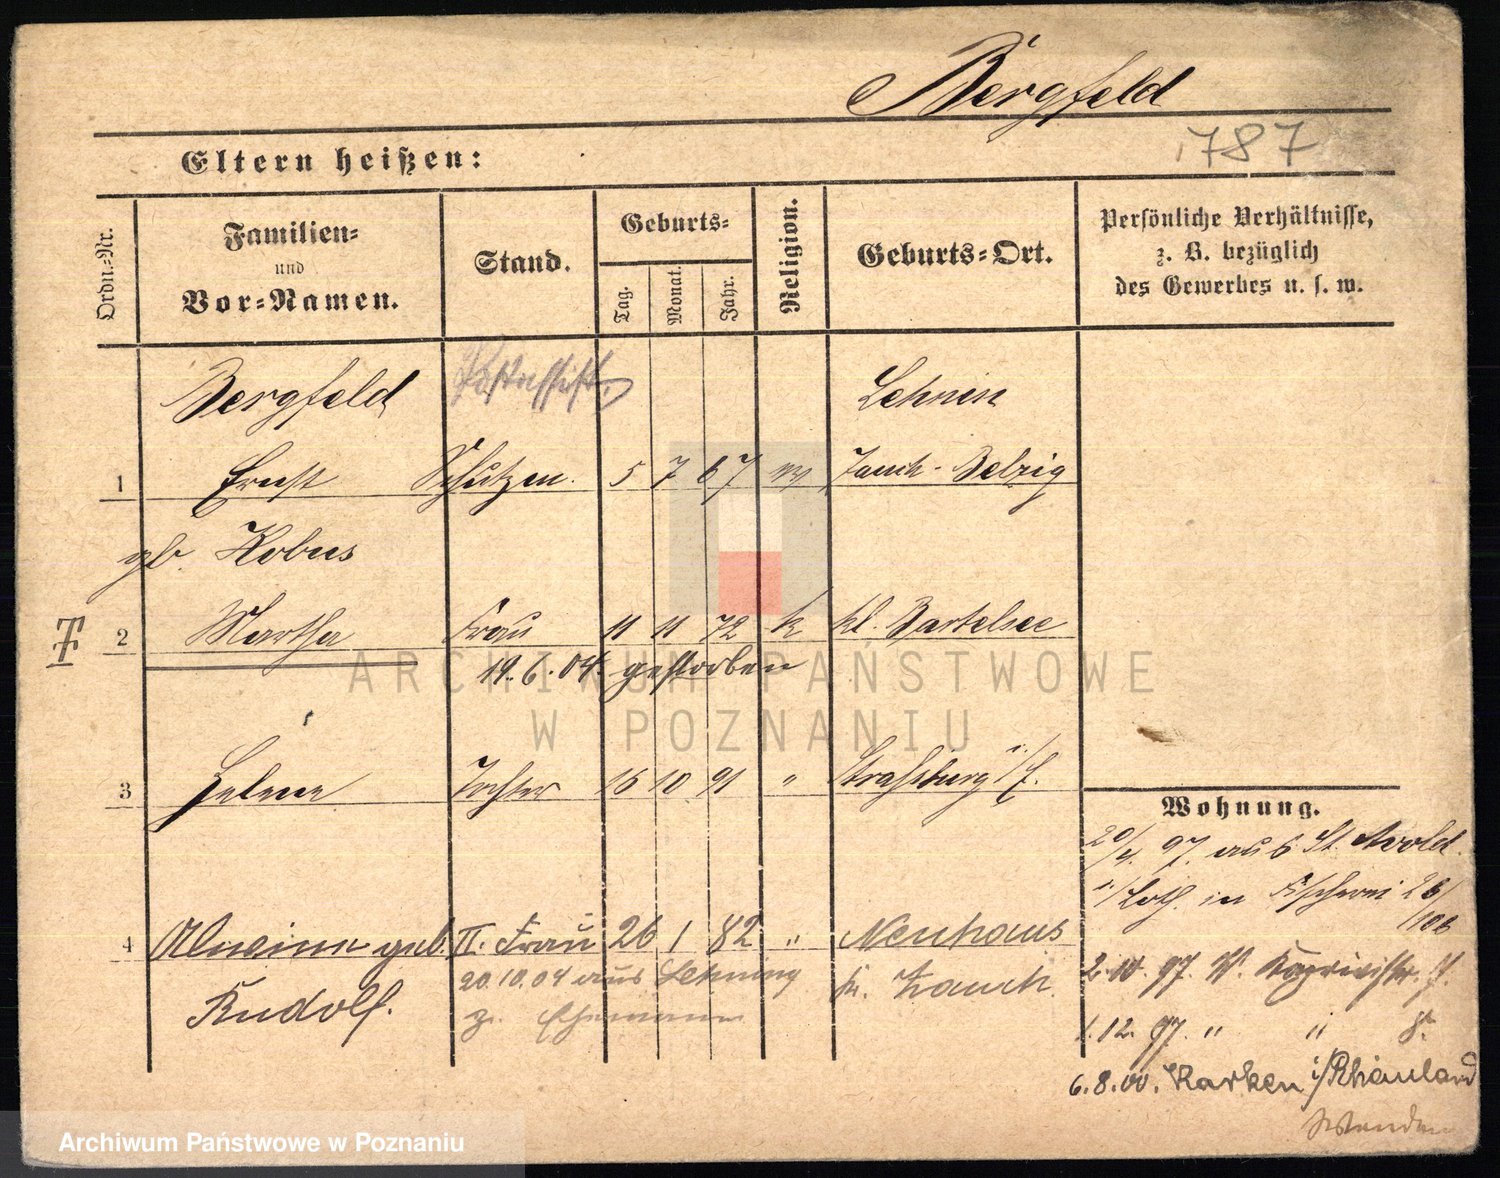 Bergfeld
Eltern heißen:
787
Ordn.-Nr.
Familien-
und
Vor-Namen.
Stand.
Geburts-
Tag.
Monat.
Jahr.
Religion.
Geburts-Ort.
Persönliche Verhältnisse,
z. B. bezüglich
des Gewerbes u. s. w.
Bergfeld
Lehnin
1 Ernst Schutzm. 5 7 67 Zauch-Belzig
gb. Kobus
2 Martha Frau 11 11 72 k Kl. Bartelsee
19.6.04. gestorben
3 Helene Tochter 16 10 91 " Strassburg i/E.
Wohnung.
20/4. 97. aus St. Avold
i/Loth. in Fischerei 26/
4 Alwine geb. II. Frau 26 1 82 " Neuhaus
Rudolf.
20.10.04 aus Lehnin
z. Ehemann
Kr. Zauch.
2.10.97. W.
1.12.97. " "
6.8.00. Karken i/Rheinland
wenden
ARCHIWUM PAŃSTWOWE
W POZNANIU
Archiwum Państwowe w Poznaniu